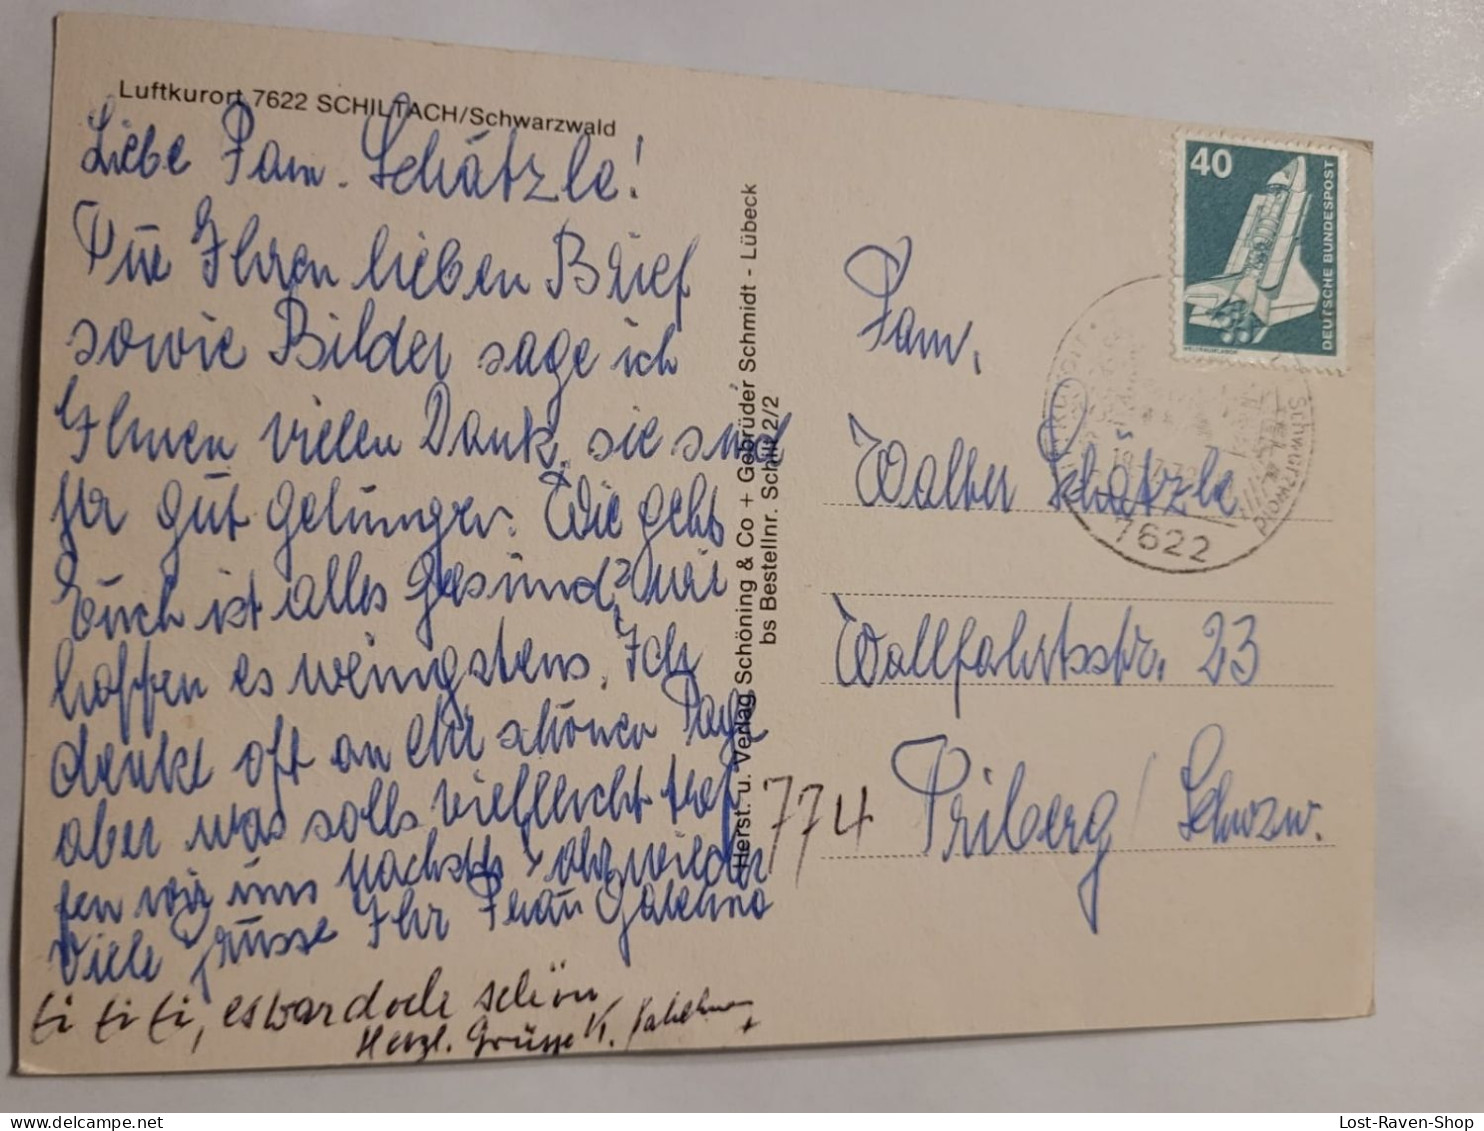 Luftkurort 7622 SCHILTACH/Schwarzwald
Liebe Fam. Schätzle!
Für Ihren lieben Brief
sowie Bilder sage ich
Ihnen vielen Dank, sie sind
ja gut gelungen. Wie gehts
Euch ist alles gesund? wir
hoffen es wenigstens. Ich
denke oft an die schönen Tage
aber was solls vielleicht tref
fen wir uns nächstes Jahr wieder
Viele Grüsse Ihr Frau
ti ti ti, es war doch schön
Herzl. Grüsse K.
Herst. u. Verlag Schöning & Co + Gebrüder Schmidt - Lübeck
bs Bestellnr. Schilt 2/2
40
DEUTSCHE BUNDESPOST
WELTRAUMLABOR
Schwarzwald
7622
Fam.
Walter Schätzle
Wallfahrtsstr. 23
774 Triberg / Schwzw.
Lost-Raven-Shop